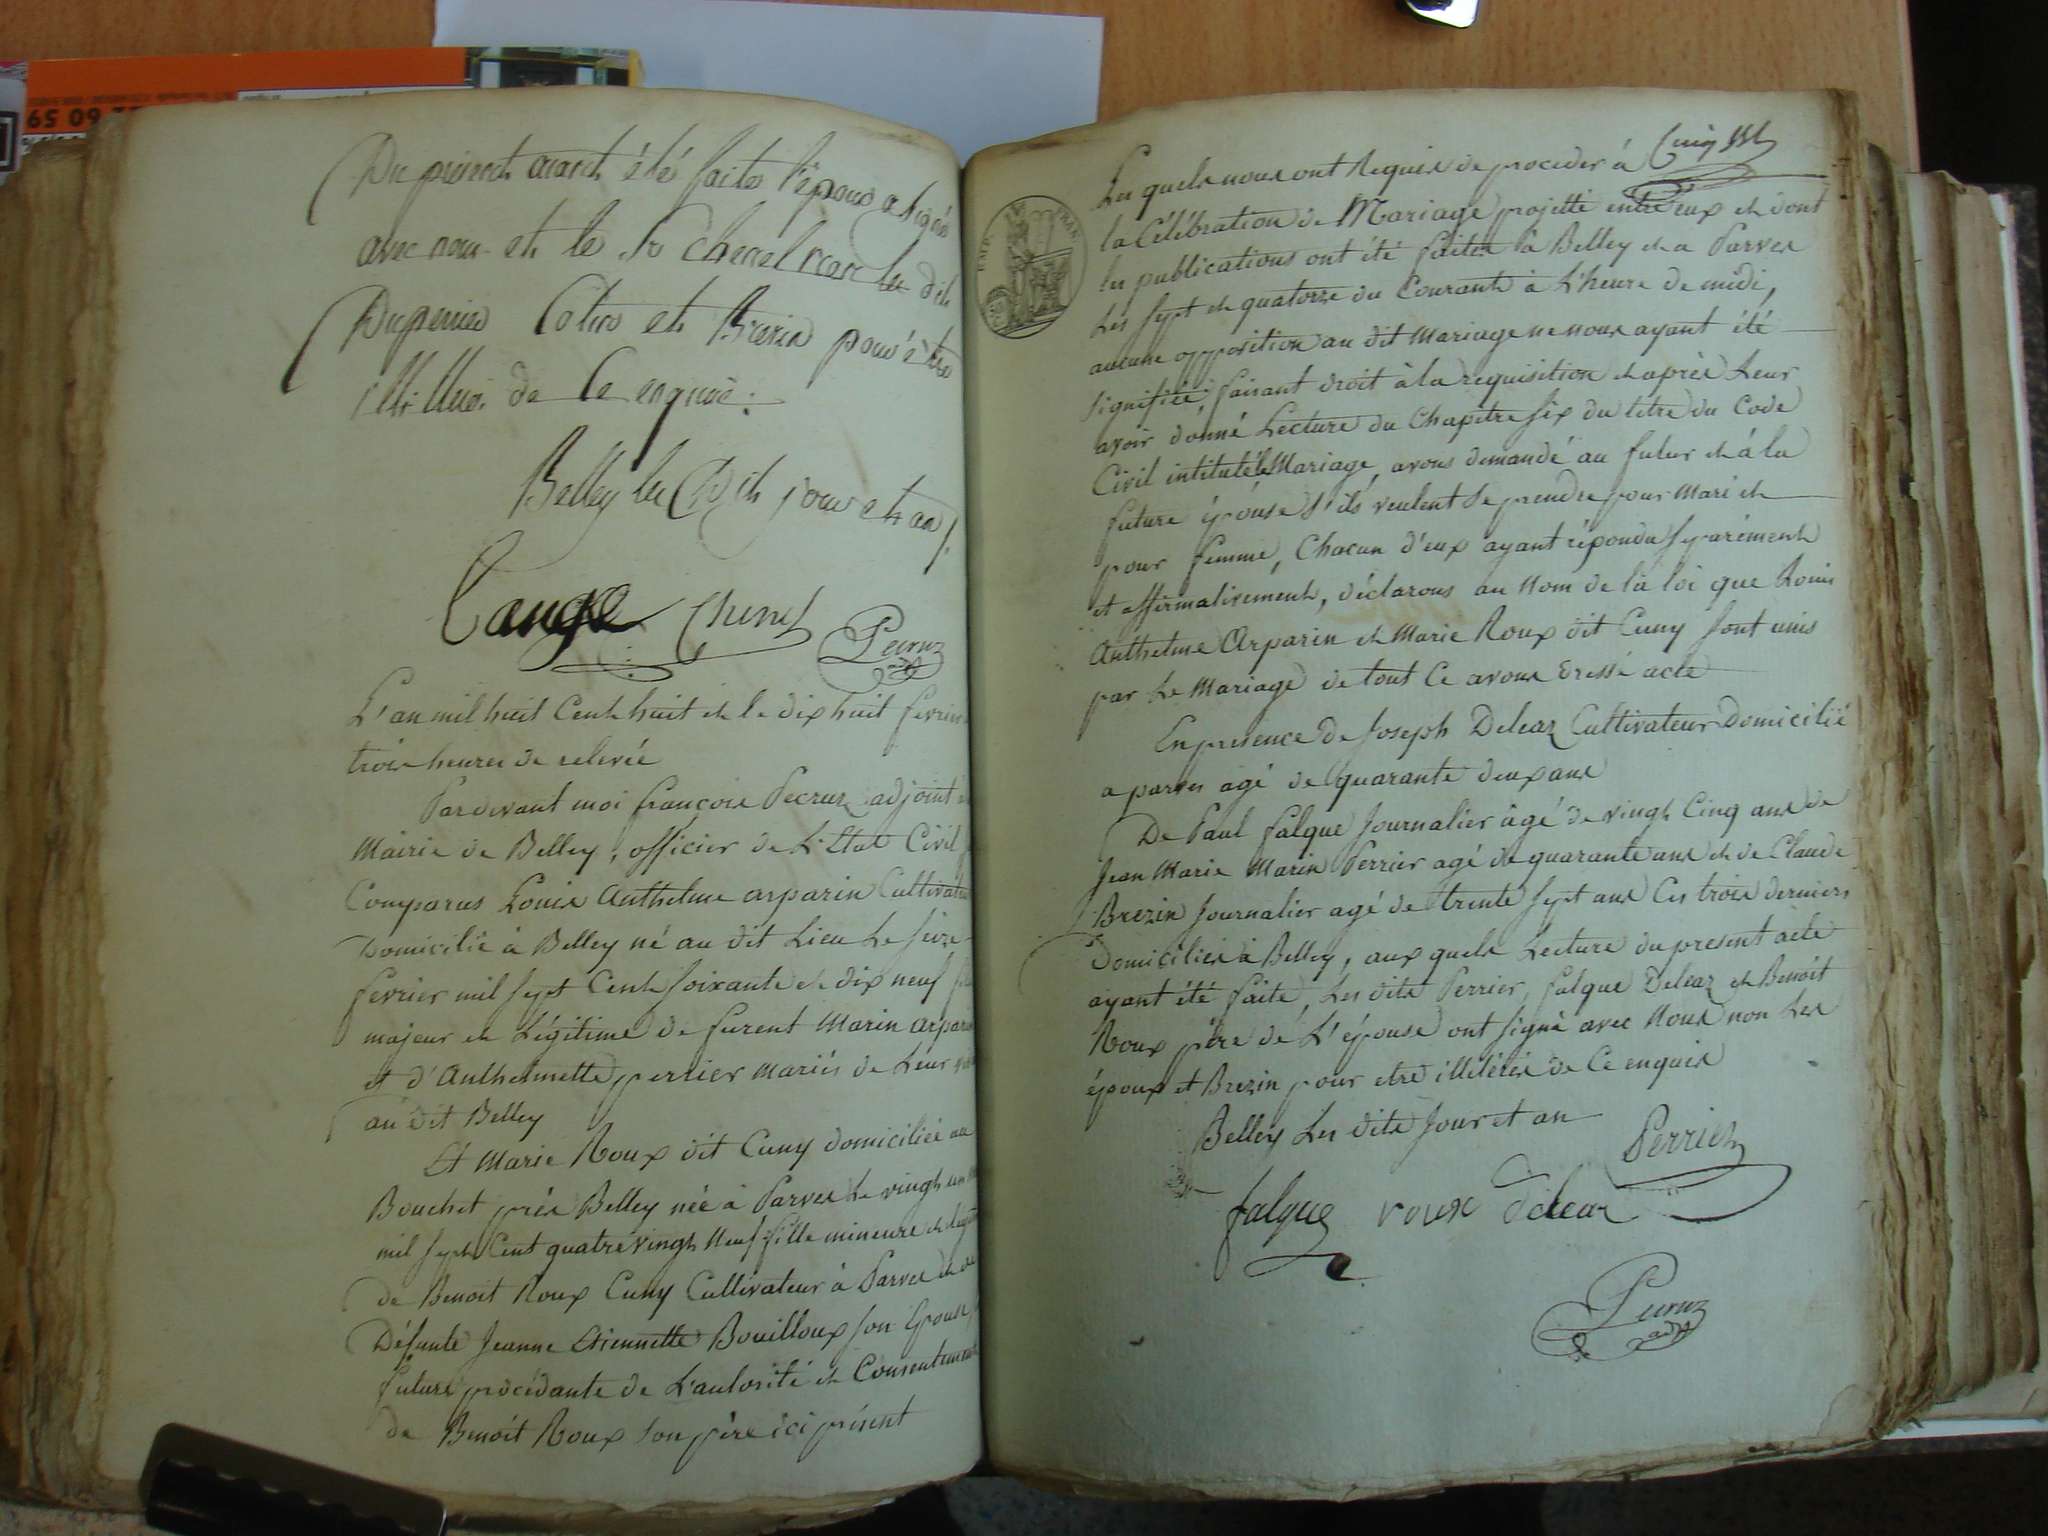 65 09 22
Du présent ayant été faite l'époux a signé
avec nous et le Sr Chenel non les dits
Duperrier Cotin et Brezin pour être
illitérés de Ce enquis.
Belley les dits jour et an /.
Tangé Chenel
Pecruz
adjt
L'an mil huit Cent huit et le dix huit fevrier
trois heures de relevée
Pardevant moi françois Pecruz adjoint
Mairie de Belley, officier de L'Etat Civil
Comparus Louis Anthelme arparin Cultivateur
Domicilié à Belley né au dit Lieu Le seize
fevrier mil sept Cent soixante et dix neuf
majeur et Légitime de furent Marin arparin
et d'Anthelmette perrier Mariés de Leur
au dit Belley
Et Marie Roux dit Cuny domiciliée au
Bouchet près Belley née à Parves Le vingt un
mil sept Cent quatre vingt Neuf fille mineure et
de Benoit Roux Cuny Cultivateur à Parves et de
Défunte Jeanne Etiennette Bouilloux son Epouse
future procédante de L'autorité et Consentement
de Benoit Roux son père ici présent
EMP. FRAN.
Les quels nous ont Requis de procéder à
la Célébration de Mariage projetté entre eux et dont
les publications ont été faites à Belley et a Parves
Les sept et quatorze du Courant à L'heure de midi,
aucune opposition au dit Mariage ne nous ayant été
signifiée, faisant droit à la requisition et après Leur
avoir donné Lecture du Chapitre six du titre du Code
Civil intitulé le Mariage, avons demandé au futur et à la
future épouse s'ils veulent se prendre pour Mari et
pour femme, Chacun d'eux ayant répondu séparément
et affirmativement, déclarons au Nom de la loi que Louis
Anthelme Arparin et Marie Roux dit Cuny sont unis
par Le Mariage de tout Ce avons dressé acte
En presence de Joseph Deleaz Cultivateur Domicilié
a parves agé de quarante deux ans
De Paul falque Journalier âgé de vingt Cinq ans de
Jean Marie Marin Perrier agé de quarante ans et de Claude
Brezin Journalier agé de trente sept ans Ces trois derniers
Domiciliés à Belley, aux quels Lecture du present acte
ayant été faite, Les dits Perrier, falque Deleaz et Benoit
Roux père de L'épouse ont signé avec Nous non Les
époux et Brezin pour etre illitérés de Ce enquis
Belley Les dits Jour et an
Perrier
falque roux deleaz
Pecruz
adjt